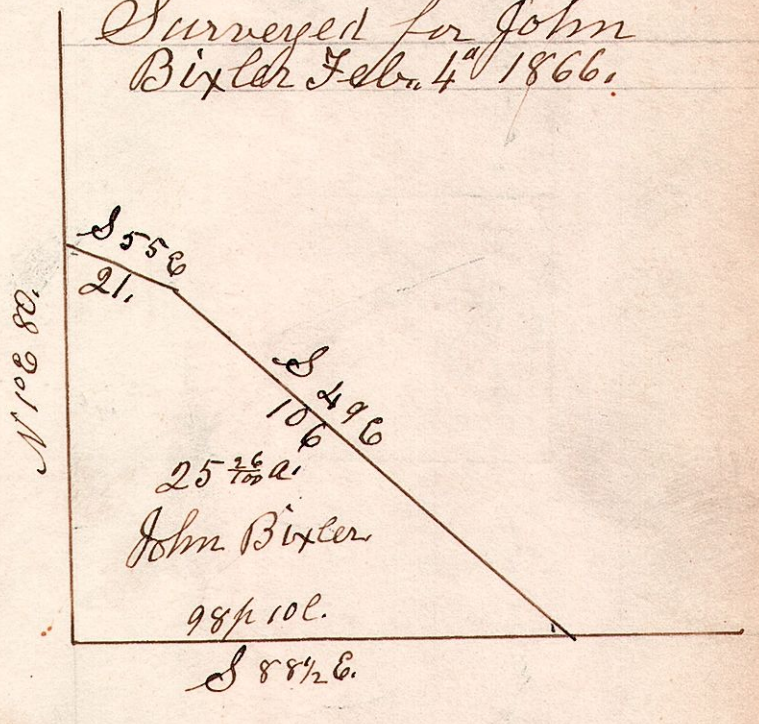 Surveyed for John
Bixler Feb. 4ᵃ 1866.
S 55 E
21.
N 1° E 80.
S 49 E
106
25 26/100 a.
John Bixler
98p 10l.
S 88 1/2 E.